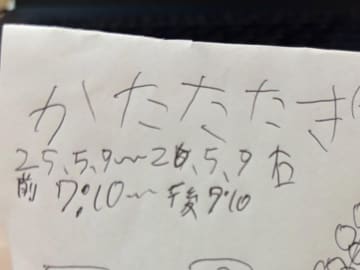 かたたたき
25、5、9〜26、5、9 右
前 7:10〜午後 9:10